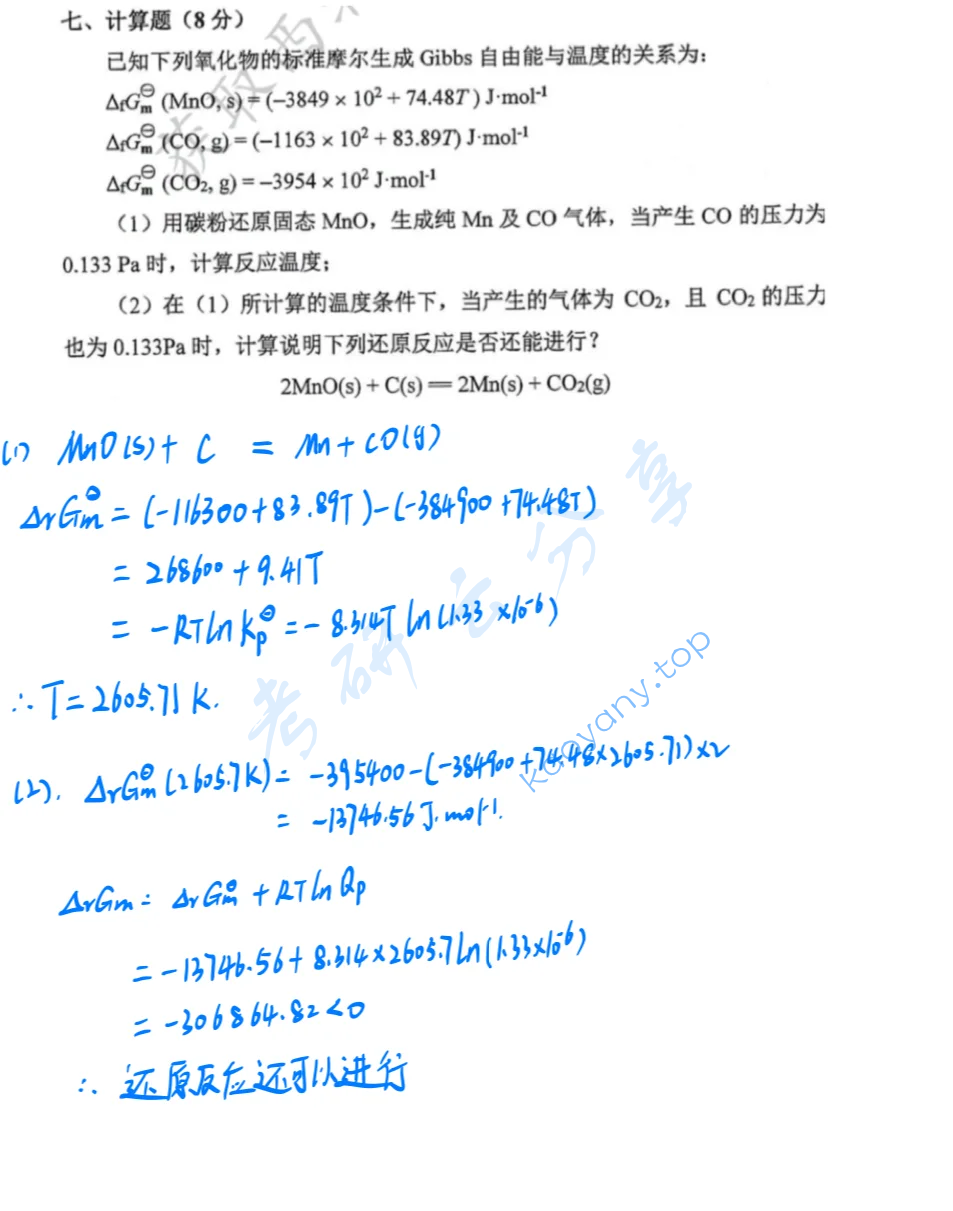 七、计算题（8 分）
已知下列氧化物的标准摩尔生成 Gibbs 自由能与温度的关系为：
ΔfGm⊖ (MnO, s) = (−3849 × 10² + 74.48T ) J·mol⁻¹
ΔfGm⊖ (CO, g) = (−1163 × 10² + 83.89T) J·mol⁻¹
ΔfGm⊖ (CO₂, g) = −3954 × 10² J·mol⁻¹
（1）用碳粉还原固态 MnO，生成纯 Mn 及 CO 气体，当产生 CO 的压力为
0.133 Pa 时，计算反应温度；
（2）在（1）所计算的温度条件下，当产生的气体为 CO₂，且 CO₂ 的压力
也为 0.133Pa 时，计算说明下列还原反应是否还能进行？
2MnO(s) + C(s) == 2Mn(s) + CO₂(g)
(1) MnO(s) + C = Mn + CO(g)
ΔrGm⊖ = (-116300+83.89T)-(-384900+74.48T)
= 268600 + 9.41T
= -RTlnKp⊖ = -8.314T ln(1.33×10⁻⁶)
∴ T = 2605.71 K.
(2). ΔrGm⊖(2605.7K) = -395400-(-384900+74.48×2605.71)×2
= -13746.56 J·mol⁻¹.
ΔrGm = ΔrGm⊖ + RTlnQp
= -13746.56 + 8.314×2605.7ln(1.33×10⁻⁶)
= -306864.82<0
∴ 还原反应还可以进行
考研云分享
kaoyany.top